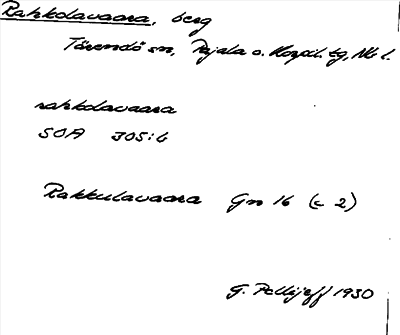 Rahkolavaara, berg
Tärendö sn, Pajala o. Korpil. tg, Nb l.
rahkolavaara
SOA 305:6
Rakkulavaara Gn 16 (c 2)
G. Pellijeff 1930